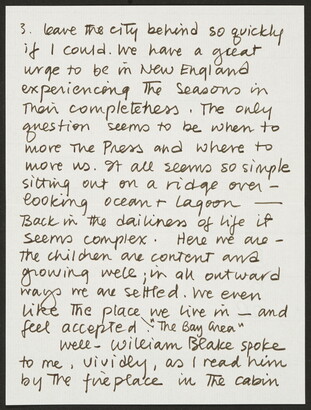 3. leave the city behind so quickly
if I could. We have a great
urge to be in New England
experiencing the seasons in
their completeness. The only
question seems to be when to
move the Press and where to
move us. It all seems so simple
sitting out on a ridge over-
looking ocean + lagoon —
Back in the dailiness of life it
seems complex. Here we are -
the children are content and
growing well; in all outward
ways we are settled. We even
like the place we live in — and
feel accepted: "The Bay Area"
Well- William Blake spoke
to me, vividly, as I read him
by the fireplace in the cabin